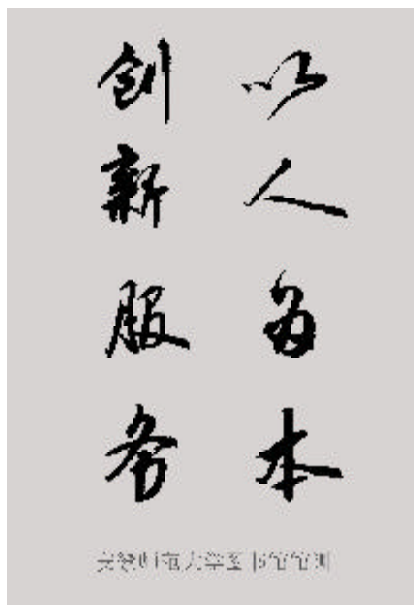 以人为本
创新服务
师范大学图书馆馆训